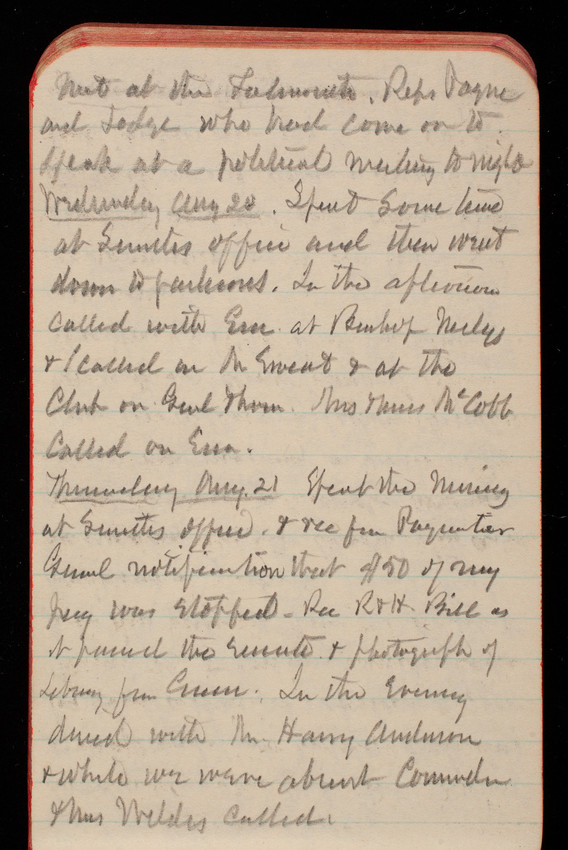 met at the Falmouth. Reps Payne
and Lodge who had come on to
speak at a political meeting to night
Wednesday Aug 20. Spent some time
at Smiths office and then went
down to Parkers. In the afternoon
called with Em at Bishop Neelys
& I called on Mr Sweat & at the
Club on Genl Thom. Mrs & Miss McCobb
called on Em.
Thursday Aug. 21 Spent the morning
at Smiths office. & rec from Paymaster
Genl notification that $50 of my
pay was stopped. Rec R & H. Bill as
it passed the Senate & photograph of
Library from Green. In the evening
dined with Mr Harry Anderson
& while we were absent Commodore
& Mrs Wildes called.